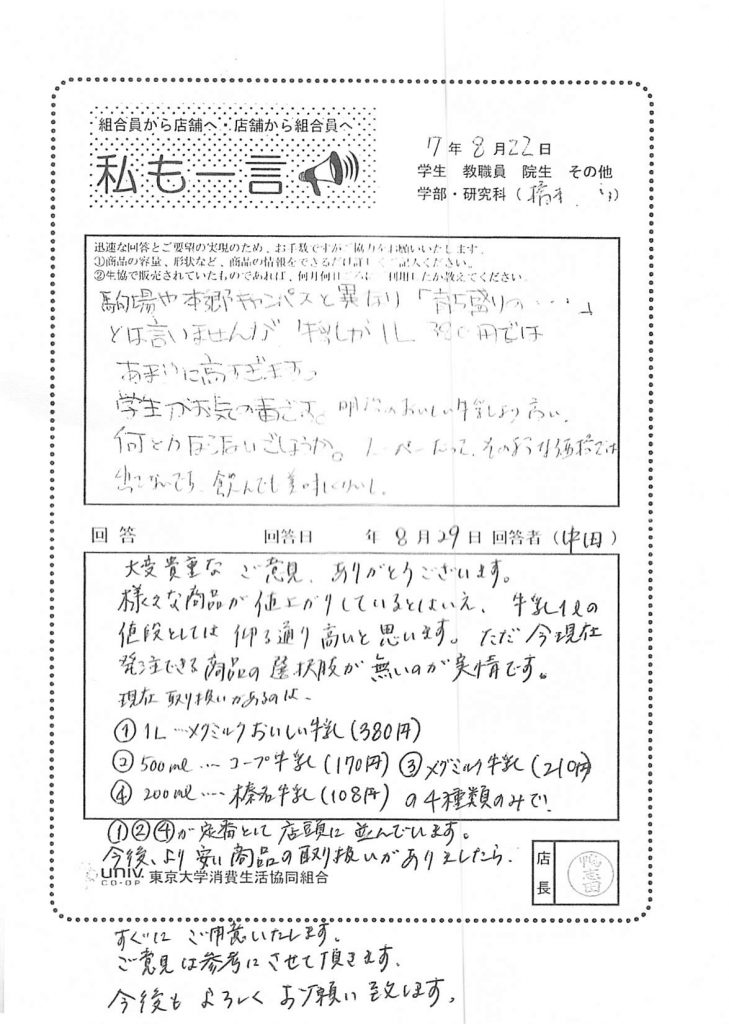 組合員から店舗へ・店舗から組合員へ
私も一言
7年8月22日
学生 教職員 院生 その他
学部・研究科（
迅速な回答とご要望の実現のため、お手数ですがご協力をお願いいたします。
①商品の容量、形状など、商品の情報をできるだけ詳しくご記入ください。
②生協で販売されていたものであれば、何月何日ごろにご利用したか教えてください。
駒場や本郷キャンパスと異なり「育ち盛りの・・・」
とは言いませんが 牛乳が1L 380円では
あまりに高すぎます。
学生がお気の毒です。明治のおいしい牛乳より高い。
何とかならないでしょうか。 そのような価格では
飲んでも美味しくないし。
回答 回答日 年8月29日 回答者（中田）
大変貴重な ご意見、ありがとうございます。
様々な商品が値上がりしているとはいえ、牛乳1ℓの
値段としては 仰る通り高いと思います。ただ今現在
発注できる商品の選択肢が無いのが実情です。
現在 取り扱いがあるのは、
① 1L…メグミルクおいしい牛乳(380円)
② 500ml…コープ牛乳(170円) ③メグミルク牛乳(210円)
④ 200ml…榛名牛乳(108円) の4種類のみで!
①②④が定番として店頭に並んでいます。
今後、より安い商品の取り扱いがありましたら、
univ. CO-OP 東京大学消費生活協同組合
店長
すぐに ご用意いたします。
ご意見は参考にさせて頂きます。
今後も よろしく お願い致します。